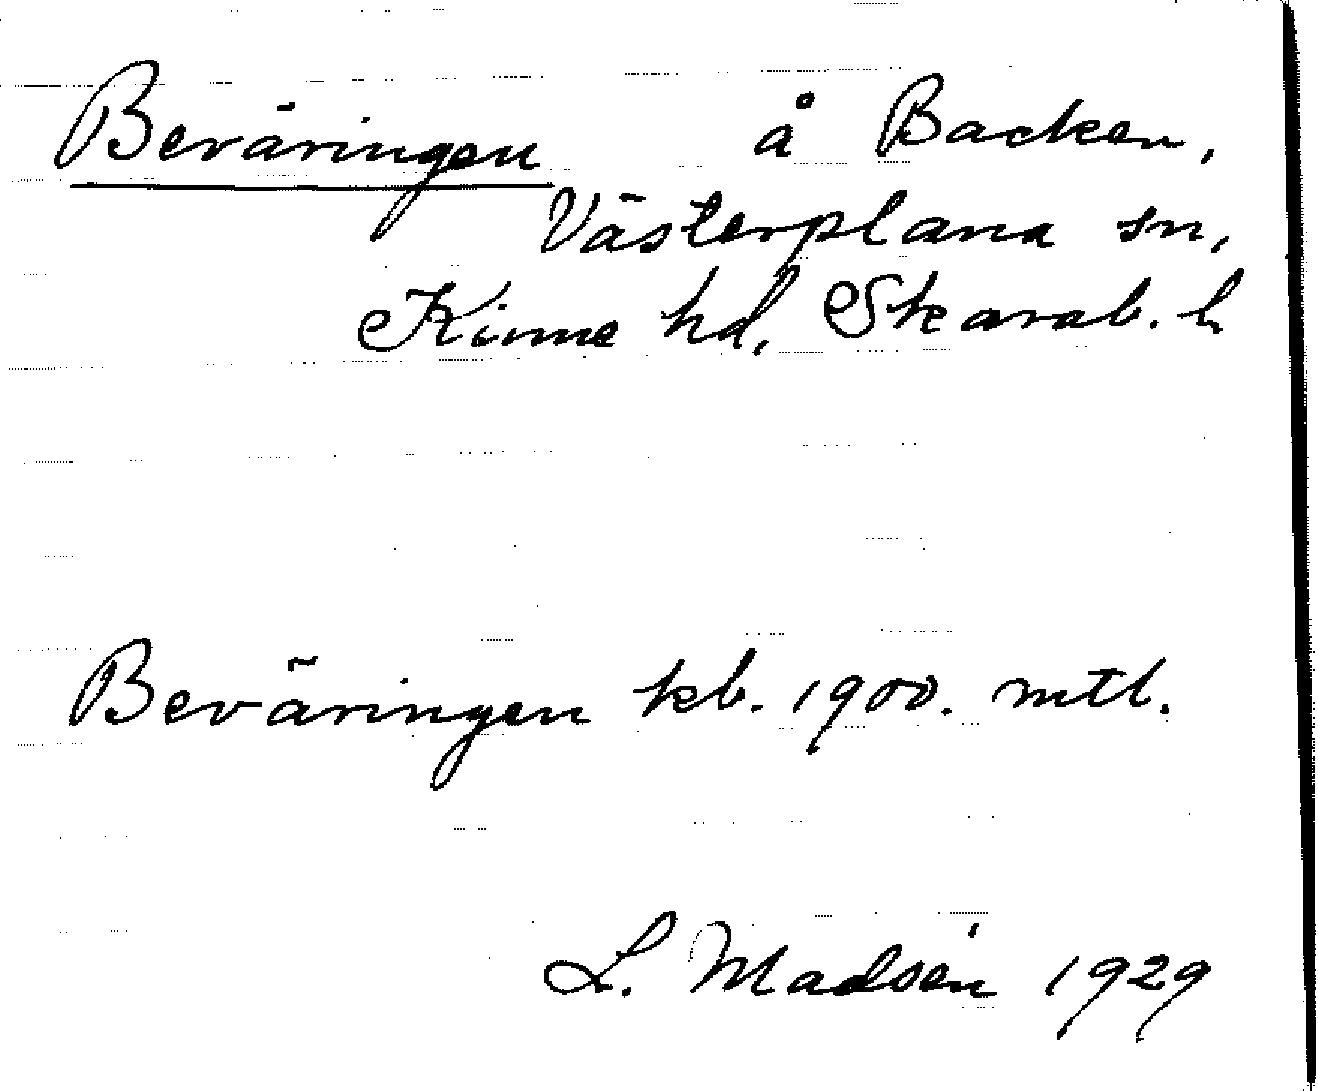 Beväringen å Backen,
Västerplana sn,
Kinne hd, Skarab. l.
Beväringen kb. 1900. mtl.
L. Madsén 1929